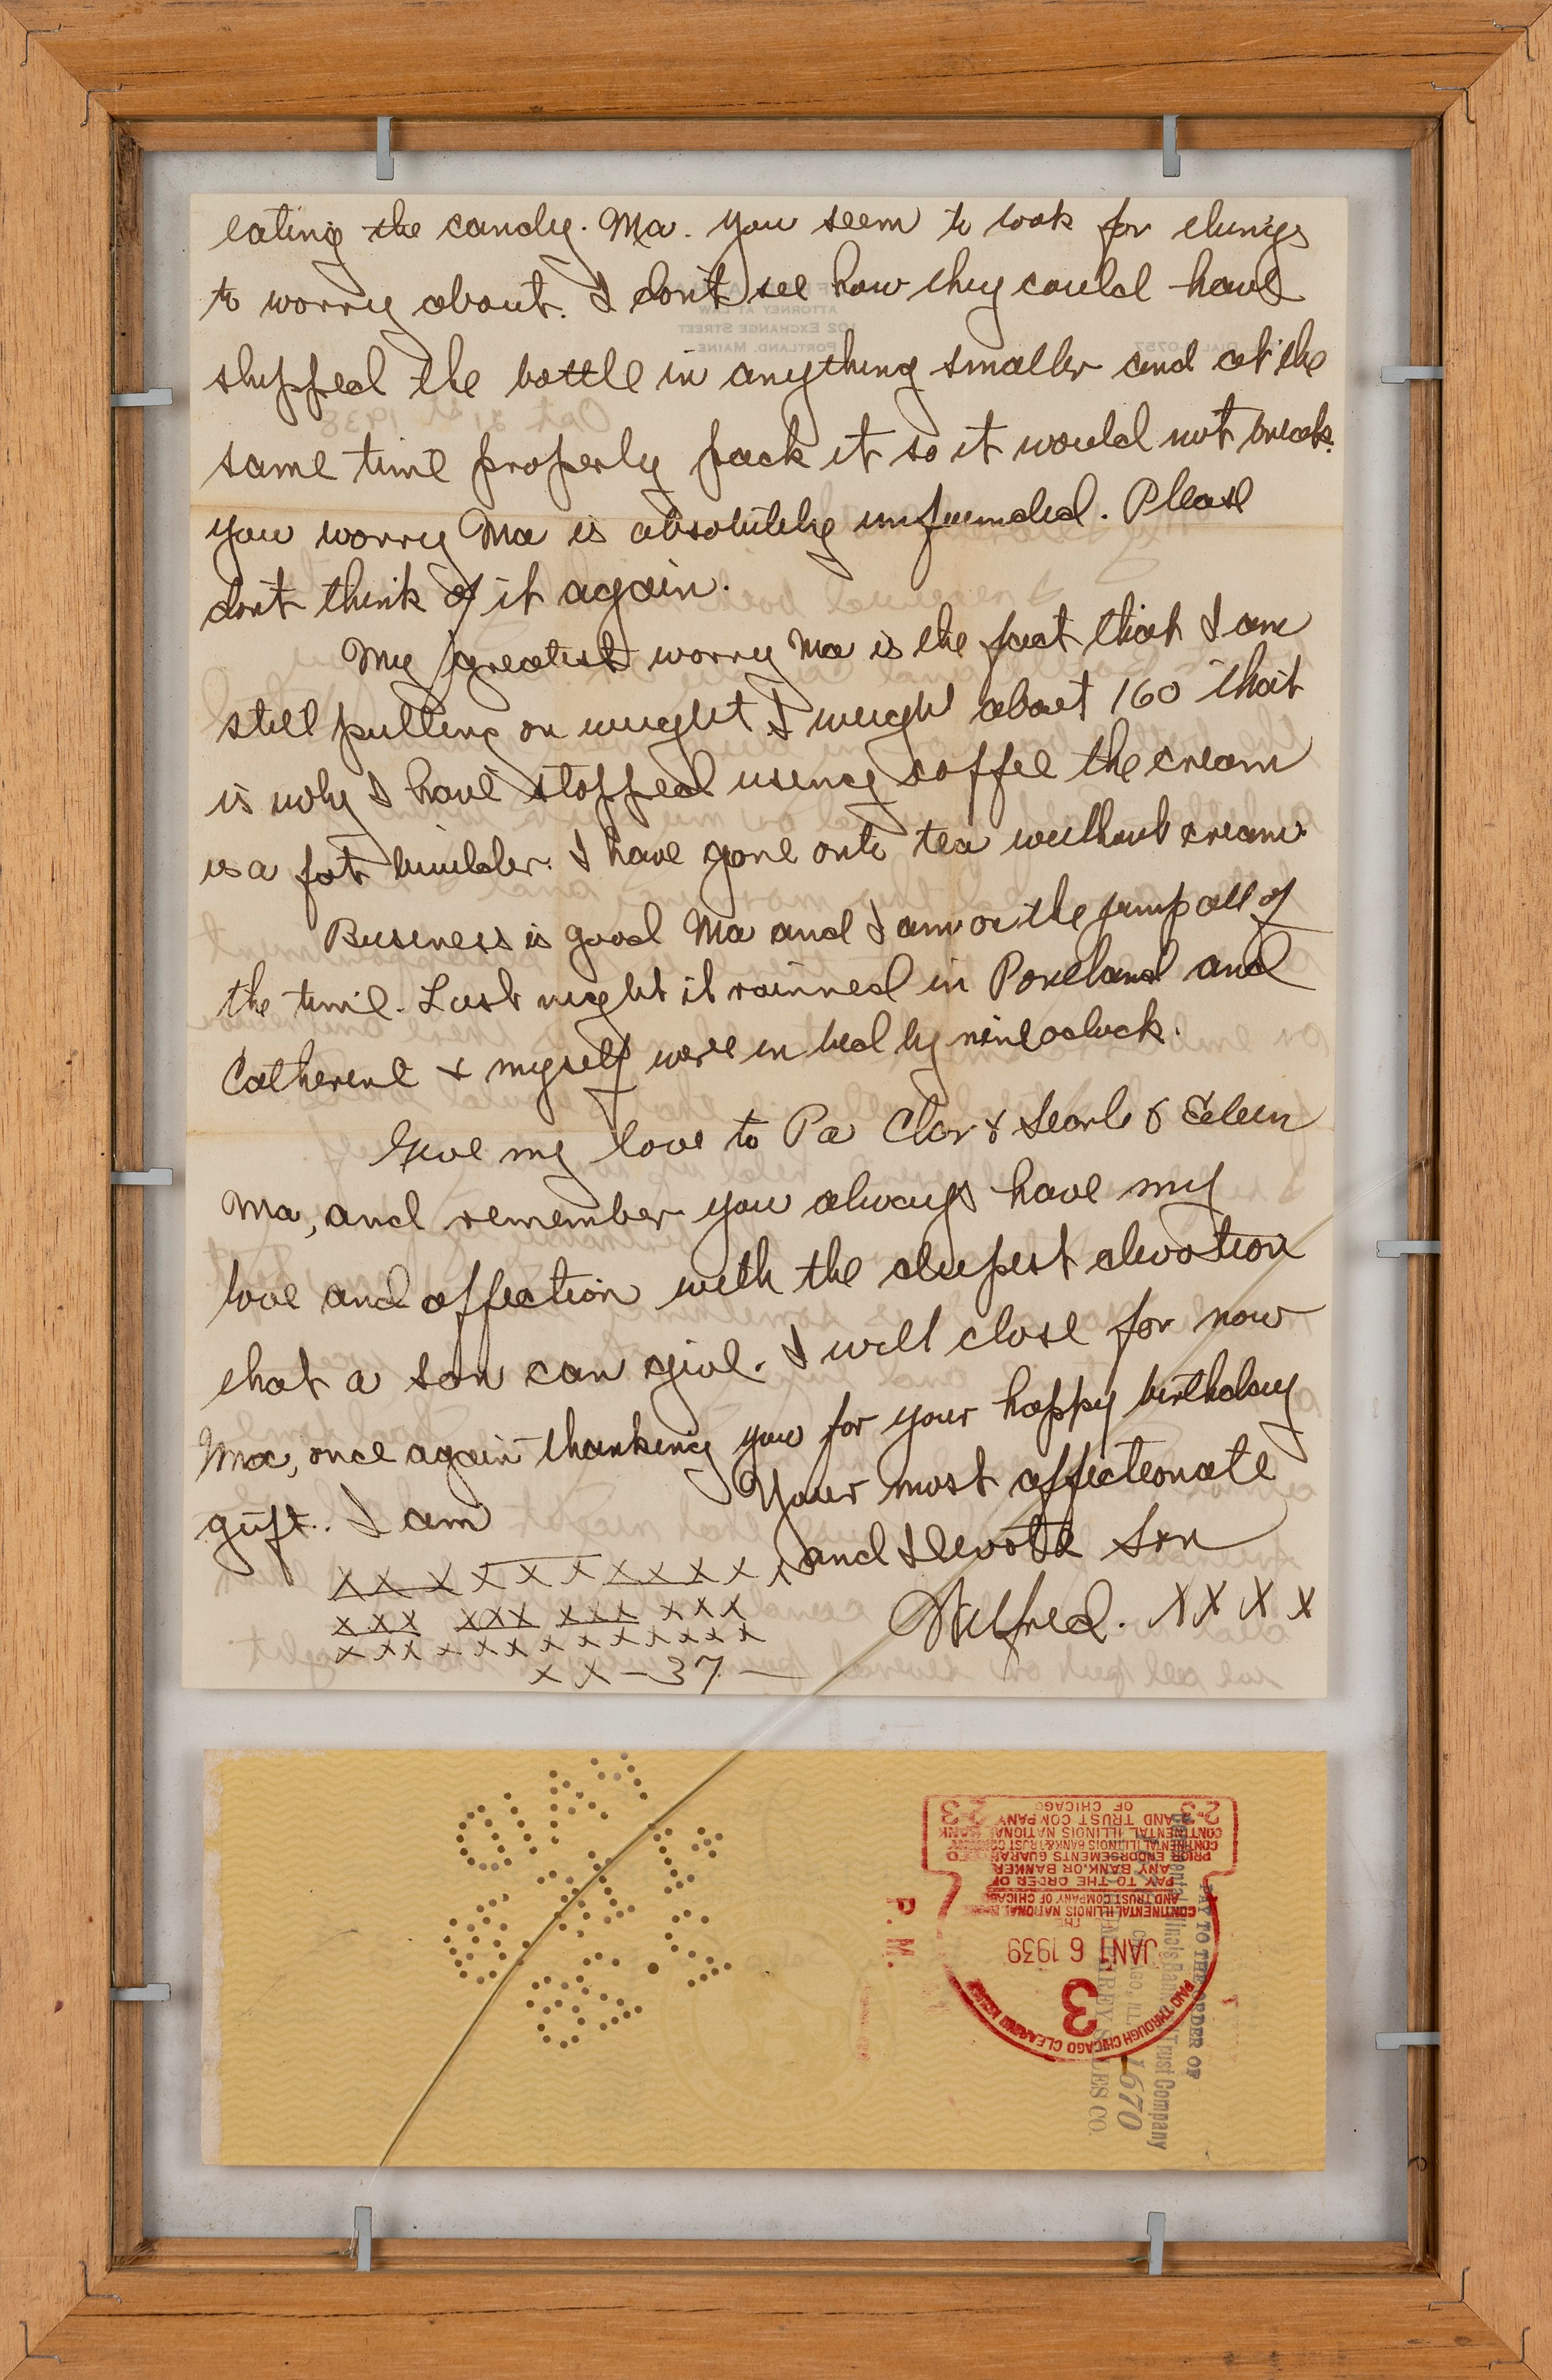 eating the candy. Ma. you seem to look for things
to worry about. I don't see how they could have
shipped the bottle in anything smaller and at the
same time properly pack it so it would not break.
you worry Ma is absolutely unfounded. Please
dont think of it again.
My greatest worry Ma is the fact that I am
still putting on weight I weight about 160 that
is why I have stopped using coffee the cream
is a fat builder. I have gone onto tea without cream.
Business is good Ma and I am on the jump all of
the time. Last night it rainned in Portland and
Catherine & myself were in bed by nine oclock.
Give my love to Pa Clar & Searle & Eileen
Ma, and remember you always have my
love and affection with the deepest devotion
that a son can give. I will close for now
Ma, once again thanking you for your happy birthday
gift. I am
Your most affectionate
and devote Son
Wilfred. X X X X
X X X X X X X X X X X
X X X X X X X X X X X X
X X X X X X X X X X X X X
X X - 37 -
ATTORNEY AT LAW
102 EXCHANGE STREET
PORTLAND, MAINE
Oct 31st 1938
2-3 2-3
OF CHICAGO
AND TRUST COMPANY
CONTINENTAL ILLINOIS NATIONAL BANK
CONTINENTAL ILLINOIS BANK & TRUST COMPANY
PRIOR ENDORSEMENTS GUARANTEED
ANY BANK, OR BANKER
PAY TO THE ORDER OF
AND TRUST COMPANY OF CHICAGO
CONTINENTAL ILLINOIS NATIONAL BANK
THE
JAN 16 1939
3
PAID THROUGH CHICAGO CLEARING HOUSE
P. M.
PAY TO THE ORDER OF
Trust Company
CHICAGO, ILL.
1670